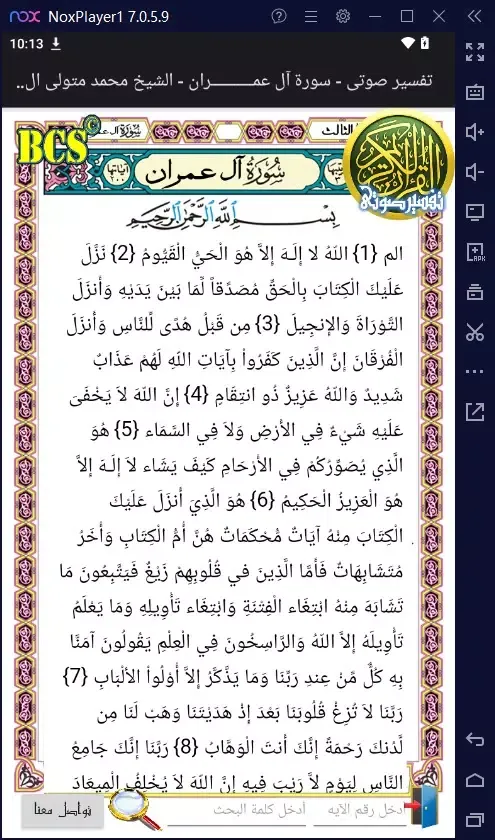 NoxPlayer1 7.0.5.9
10:13
تفسير صوتى - سورة آل عمـــــــران - الشيخ محمد متولى ال..
BCS©
سورة آل عمران
الثالث
سُورَةُ آل عمران
آياتها
٢٠٠
القرآن الكريم
تفسير صوتى
بِسْمِ اللَّهِ الرَّحْمَنِ الرَّحِيمِ
الم {1} اللّهُ لا إِلَـهَ إِلاَّ هُوَ الْحَيُّ الْقَيُّومُ {2} نَزَّلَ
عَلَيْكَ الْكِتَابَ بِالْحَقِّ مُصَدِّقاً لِّمَا بَيْنَ يَدَيْهِ وَأَنزَلَ
التَّوْرَاةَ وَالإِنجِيلَ {3} مِن قَبْلُ هُدًى لِّلنَّاسِ وَأَنزَلَ
الْفُرْقَانَ إِنَّ الَّذِينَ كَفَرُواْ بِآيَاتِ اللّهِ لَهُمْ عَذَابٌ
شَدِيدٌ وَاللّهُ عَزِيزٌ ذُو انتِقَامٍ {4} إِنَّ اللّهَ لاَ يَخْفَىَ
عَلَيْهِ شَيْءٌ فِي الأَرْضِ وَلاَ فِي السَّمَاء {5} هُوَ
الَّذِي يُصَوِّرُكُمْ فِي الأَرْحَامِ كَيْفَ يَشَاء لاَ إِلَـهَ إِلاَّ
هُوَ الْعَزِيزُ الْحَكِيمُ {6} هُوَ الَّذِيَ أَنزَلَ عَلَيْكَ
الْكِتَابَ مِنْهُ آيَاتٌ مُّحْكَمَاتٌ هُنَّ أُمُّ الْكِتَابِ وَأُخَرُ
مُتَشَابِهَاتٌ فَأَمَّا الَّذِينَ في قُلُوبِهِمْ زَيْغٌ فَيَتَّبِعُونَ مَا
تَشَابَهَ مِنْهُ ابْتِغَاء الْفِتْنَةِ وَابْتِغَاء تَأْوِيلِهِ وَمَا يَعْلَمُ
تَأْوِيلَهُ إِلاَّ اللّهُ وَالرَّاسِخُونَ فِي الْعِلْمِ يَقُولُونَ آمَنَّا
بِهِ كُلٌّ مِّنْ عِندِ رَبِّنَا وَمَا يَذَّكَّرُ إِلاَّ أُوْلُواْ الألْبَابِ {7}
رَبَّنَا لاَ تُزِغْ قُلُوبَنَا بَعْدَ إِذْ هَدَيْتَنَا وَهَبْ لَنَا مِن
لَّدُنكَ رَحْمَةً إِنَّكَ أَنتَ الْوَهَّابُ {8} رَبَّنَا إِنَّكَ جَامِعُ
النَّاسِ لِيَوْمٍ لاَّ رَيْبَ فِيهِ إِنَّ اللّهَ لاَ يُخْلِفُ الْمِيعَادَ
أدخل رقم الآيه
أدخل كلمة البحث
تواصل معنا